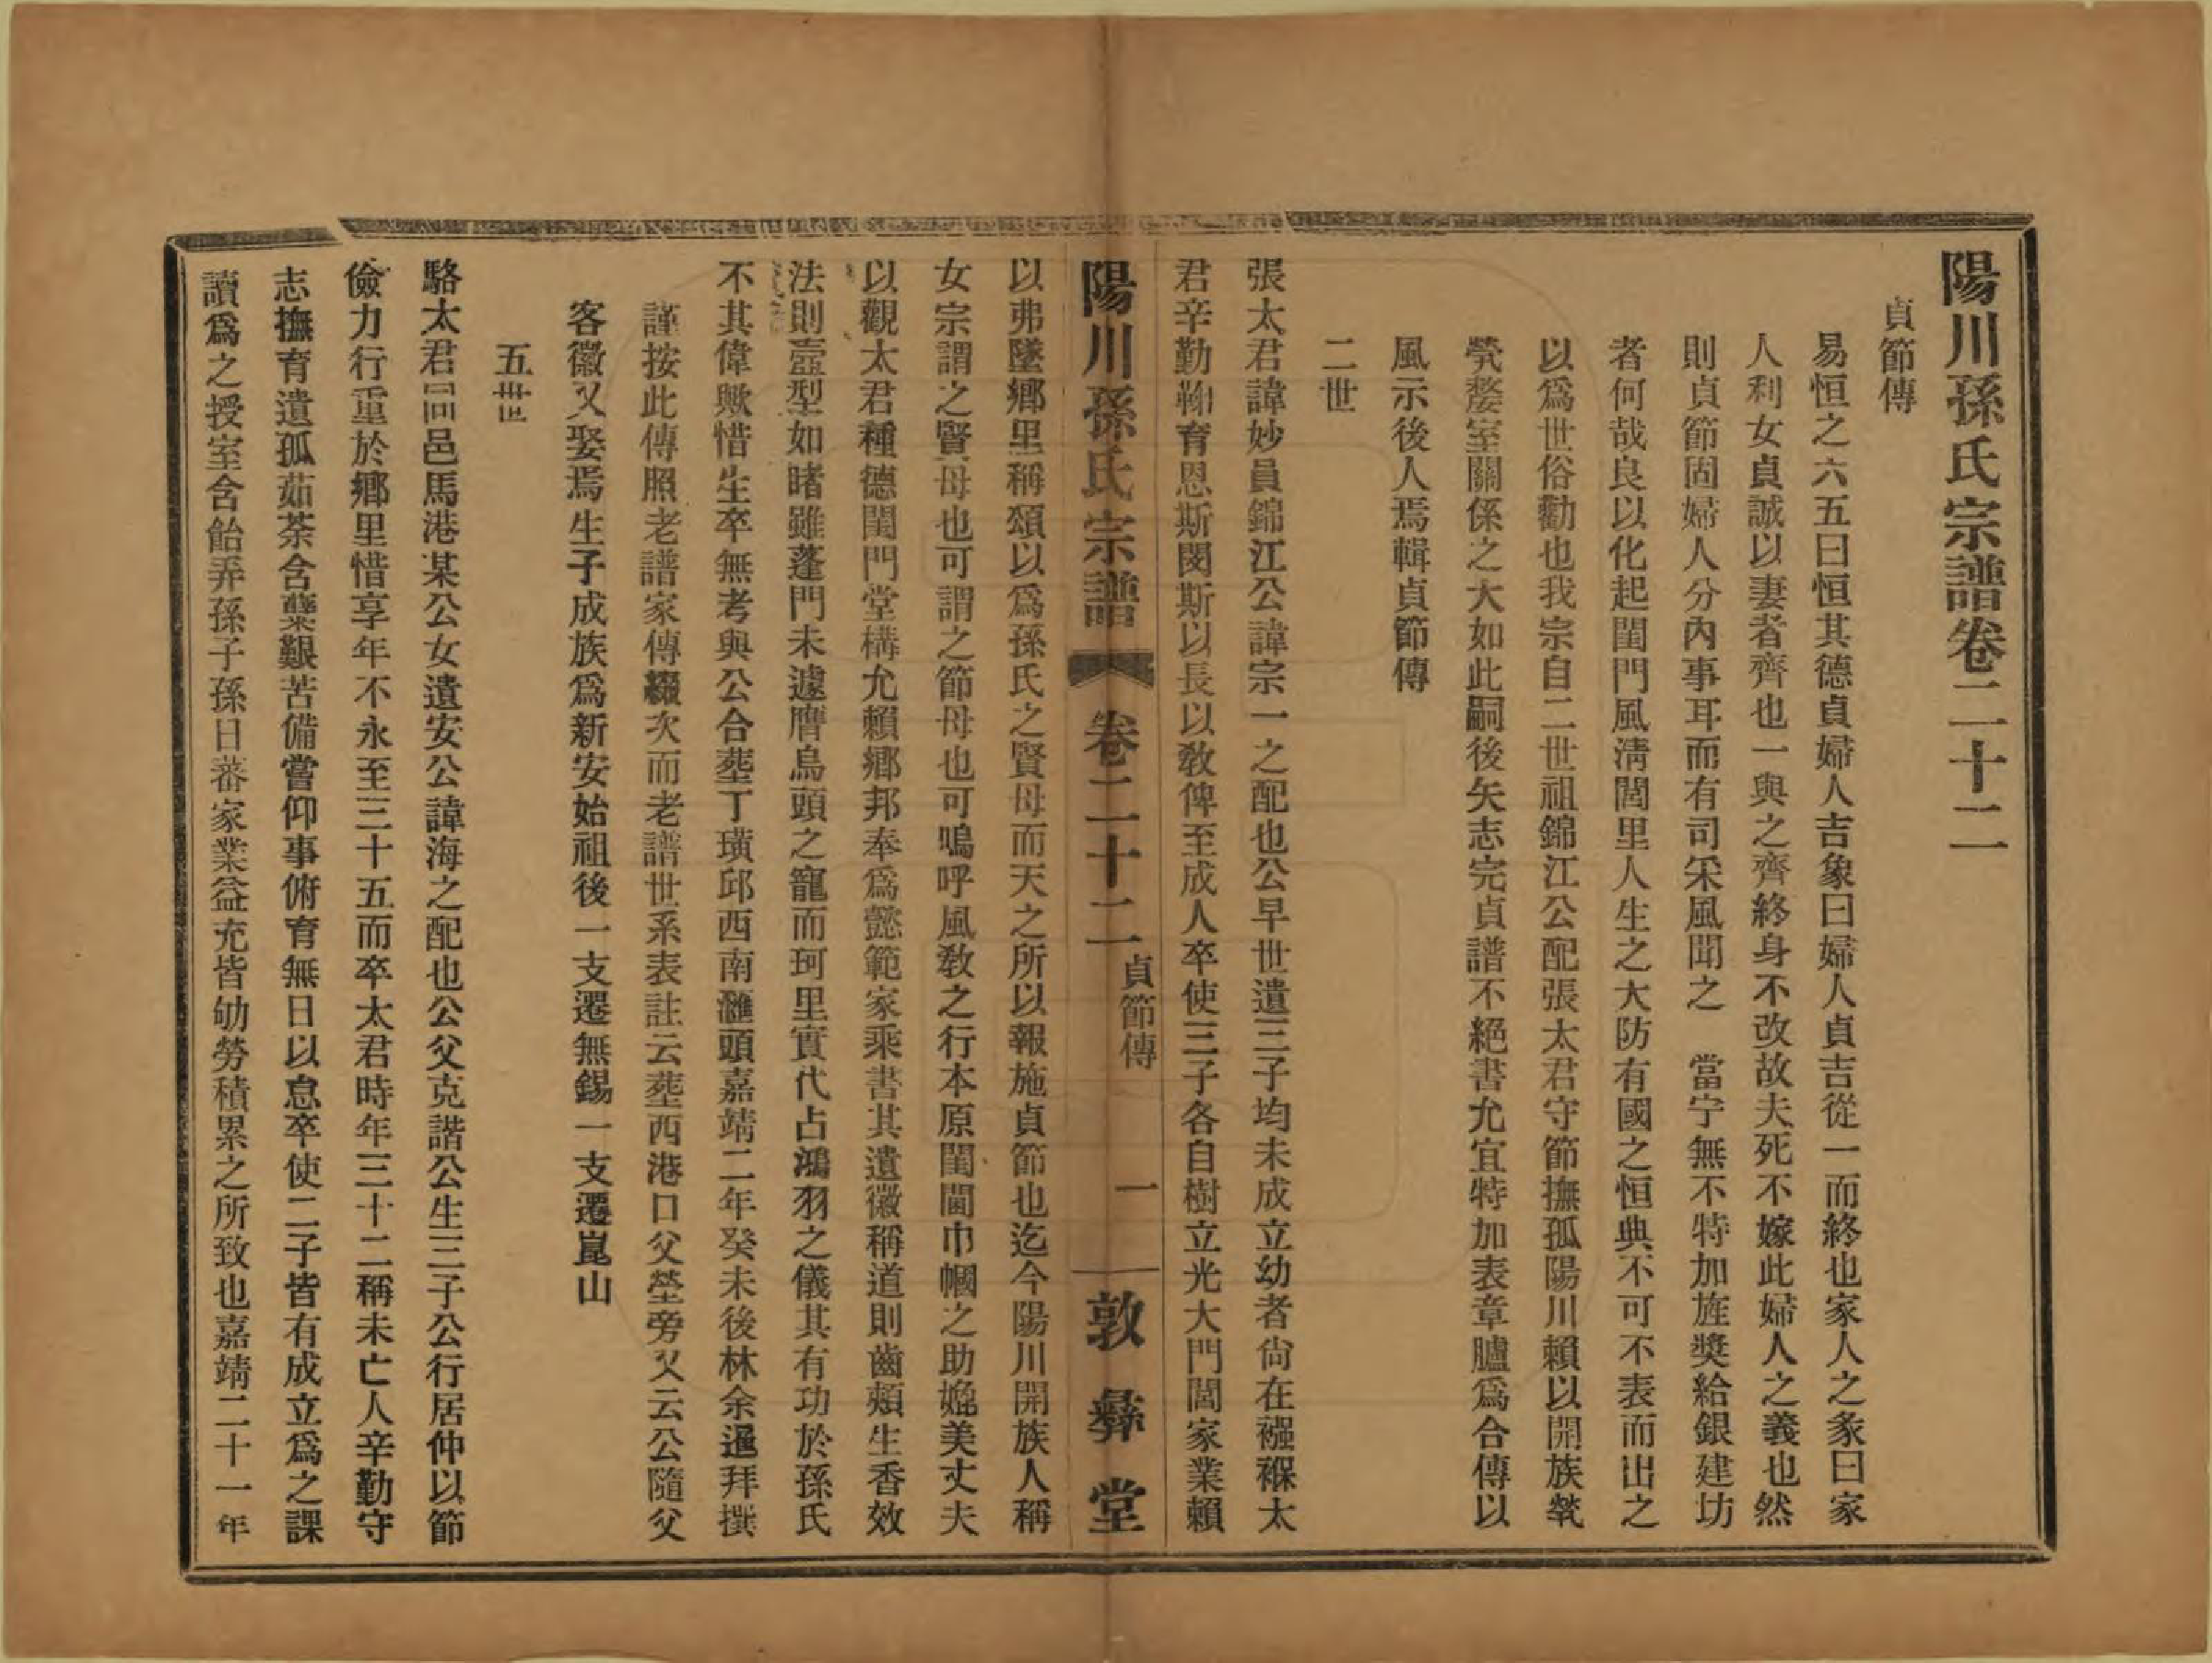 陽川孫氏宗譜卷二十二
貞節傳
易恒之六五曰恒其德貞婦人吉象曰婦人貞吉從一而終也家人之彖曰家
人利女貞誠以妻者齊也一與之齊終身不改故夫死不嫁此婦人之義也然
則貞節固婦人分內事耳而有司采風聞之 當宁無不特加旌獎給銀建坊
者何哉良以化起閨門風淸閭里人生之大防有國之恒典不可不表而出之
以爲世俗勸也我宗自二世祖錦江公配張太君守節撫孤陽川賴以開族煢
煢嫠室關係之大如此嗣後矢志完貞譜不絕書允宜特加表章臚爲合傳以
風示後人焉輯貞節傳
二世
張太君諱妙員錦江公諱宗一之配也公早世遺三子均未成立幼者尙在襁褓太
君辛勤鞠育恩斯閔斯以長以敎俾至成人卒使三子各自樹立光大門閭家業賴
陽川孫氏宗譜 卷二十二 貞節傳 一 敦彝堂
以弗墜鄉里稱頌以爲孫氏之賢母而天之所以報施貞節也迄今陽川開族人稱
女宗謂之賢母也可謂之節母也可嗚呼風敎之行本原閨閫巾幗之助媲美丈夫
以觀太君種德閨門堂構允賴鄉邦奉爲懿範家乘書其遺徽稱道則齒頰生香效
法則壼型如睹雖蓬門未遽膺烏頭之寵而珂里實代占鴻羽之儀其有功於孫氏
不其偉歟惜生卒無考與公合塟丁璜邱西南滙頭嘉靖二年癸未後林余暹拜撰
謹按此傳照老譜家傳綴次而老譜世系表註云塟西港口父塋旁又云公隨父
客徽又娶焉生子成族爲新安始祖後一支遷無錫一支遷崑山
五世
駱太君同邑馬港某公女遺安公諱海之配也公父克諧公生三子公行居仲以節
儉力行重於鄉里惜享年不永至三十五而卒太君時年三十二稱未亡人辛勤守
志撫育遺孤茹荼含蘗艱苦備嘗仰事俯育無日以怠卒使二子皆有成立爲之課
讀爲之授室含飴弄孫子孫日蕃家業益充皆劬勞積累之所致也嘉靖二十一年